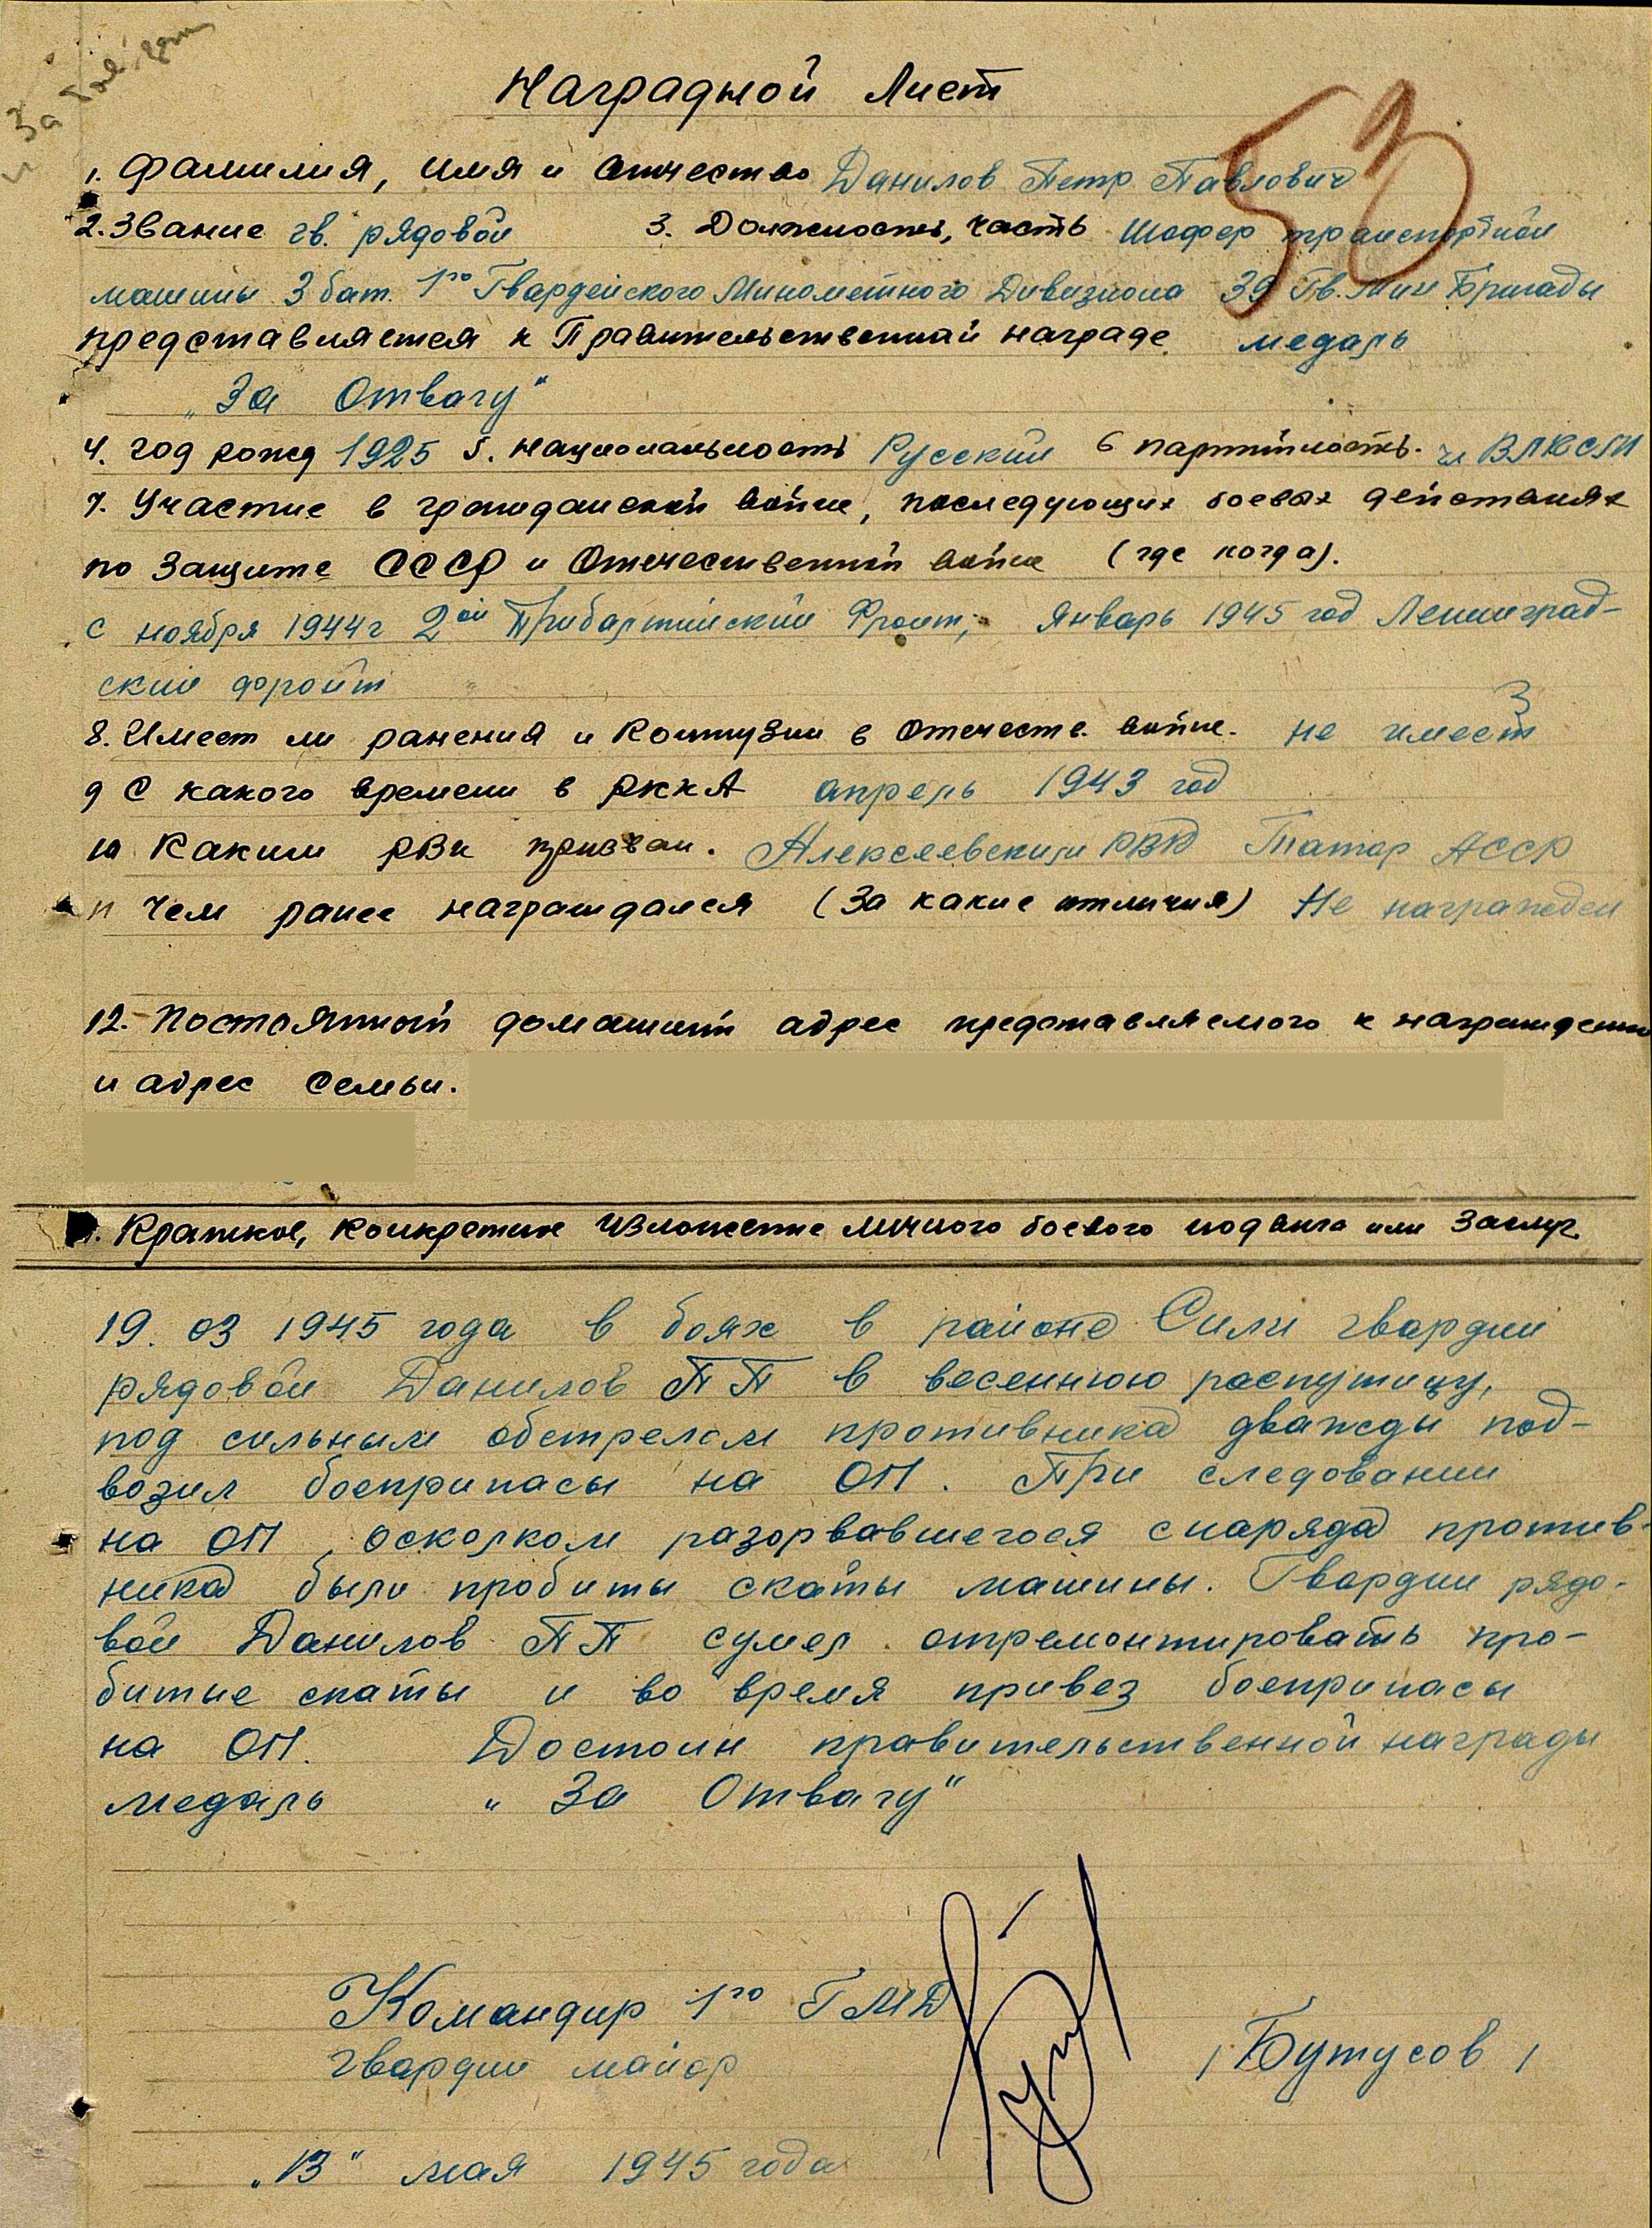 и За боев.
53
Наградной Лист
1. Фамилия, имя и отчество Данилов Петр Павлович
2. Звание гв. рядовой 3. Должность, часть Шофер транспортной
машины 3 бат. 1го Гвардейского Минометного Дивизиона 39 Гв. Мин Бригады
представляется к Правительственной награде медаль
„За Отвагу“
4. год рожд 1925 5. национальность Русский 6 партийность. чл ВЛКСМ
7. Участие в гражданской войне, последующих боевых действиях
по защите СССР и Отечественной войне (где когда).
с ноября 1944 г 2ой Прибалтийский Фронт, январь 1945 год Ленинград-
ский фронт
8. Имеет ли ранения и контузии в отечеств. войне. не имеет
9 С какого времени в РККА апрель 1943 год
10 Каким РВК призван. Алексеевским РВК Татар АССР
11 Чем ранее награждался (за какие отличия) Не награжден
12. Постоянный домашний адрес представляемого к награждению
и адрес семьи.
Краткое, конкретное изложение личного боевого подвига или заслуг.
19. 03 1945 года в боях в районе Сили гвардии
рядовой Данилов ПП в весеннюю распутицу,
под сильным обстрелом противника дважды под-
возил боеприпасы на ОП. При следовании
на ОП, осколком разорвавшегося снаряда против-
ника были пробиты скаты машины. Гвардии рядо-
вой Данилов ПП сумел отремонтировать про-
битые скаты и во время привез боеприпасы
на ОП. Достоин правительственной награды
медаль „За Отвагу“
Командир 1го ГМД
гвардии майор /Бутусов/
„13“ мая 1945 года